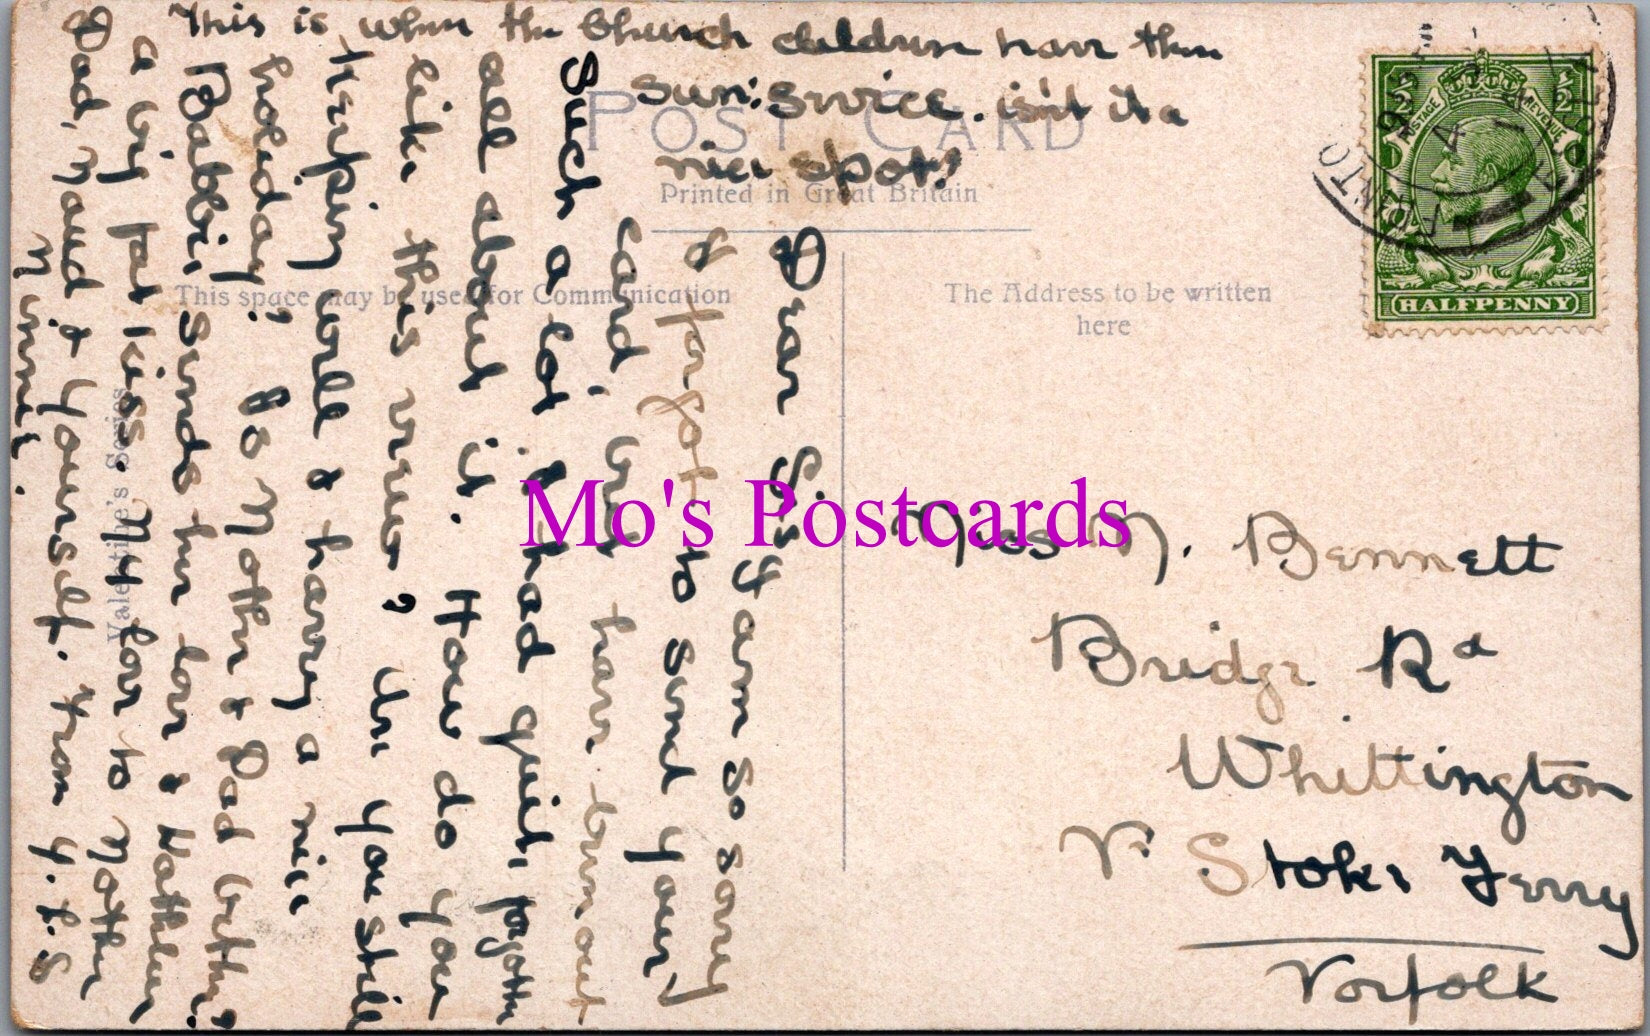 This is when the Church children have their
Sun: Service. isn't it a
nice spot!
POST CARD
Printed in Great Britain
This space may be used for Communication
The Address to be written
here
Valentine's Series
HALFPENNY
POSTAGE
REVENUE
Dear Sis, I am so sorry
I forgot to send your
card, you have turned out
Such a lot I had quite forgotten
all about it. How do you
like this view? Are you still
keeping well & having a nice
holiday? So Mother & Dad
Babbie sends her love & Kathleen
a big fat kiss. My love to Mother
Dad, Maud & yourself. From Y.L.S
Winnie.
Miss M. Bennett
Bridge Rd
Whittington
Nr Stoke Ferry
Norfolk
Mo's Postcards